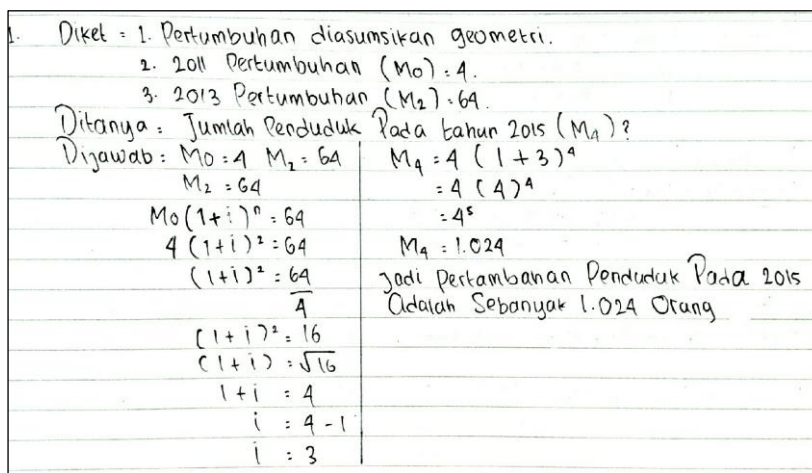 1. Diket = 1. Pertumbuhan diasumsikan geometri.
2. 2011 Pertumbuhan (Mo) = 4.
3. 2013 Pertumbuhan (M₂) = 64.
Ditanya = Jumlah Penduduk Pada tahun 2015 (M₄)?
Dijawab = Mo = 4 M₂ = 64
M₂ = 64
Mo (1+i)ⁿ = 64
4 (1+i)² = 64
(1+i)² = 64
4
(1+i)² = 16
(1+i) = √16
1+i = 4
i = 4-1
i = 3
M₄ = 4 (1+3)⁴
= 4 (4)⁴
= 4⁵
M₄ = 1.024
Jadi Pertambahan Penduduk Pada 2015
Adalah Sebanyak 1.024 Orang